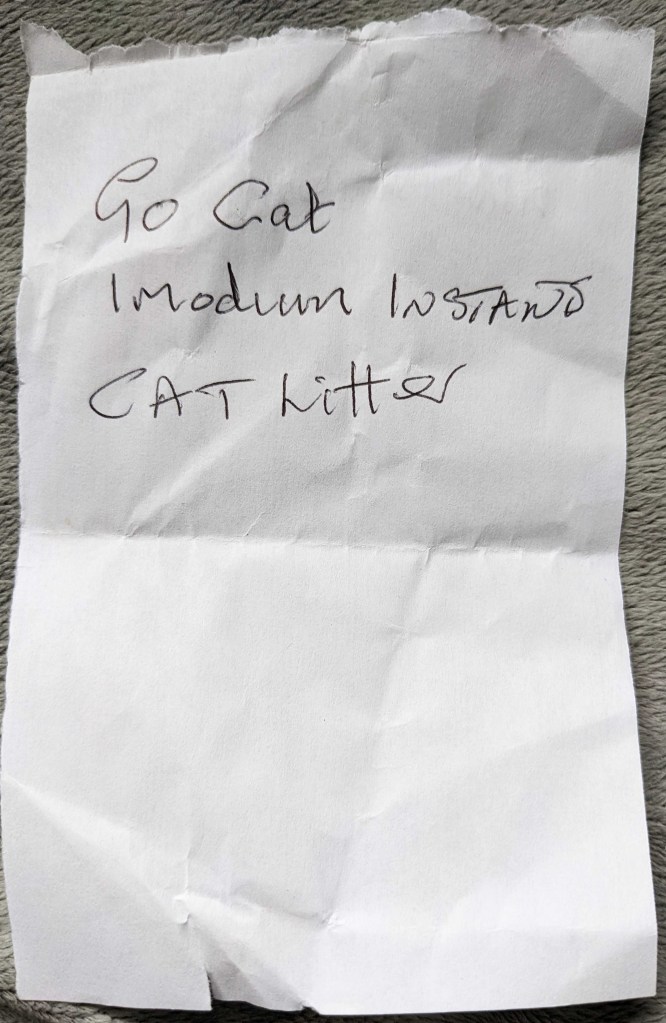 Go Cat
Imodium INSTANTS
CAT Litter